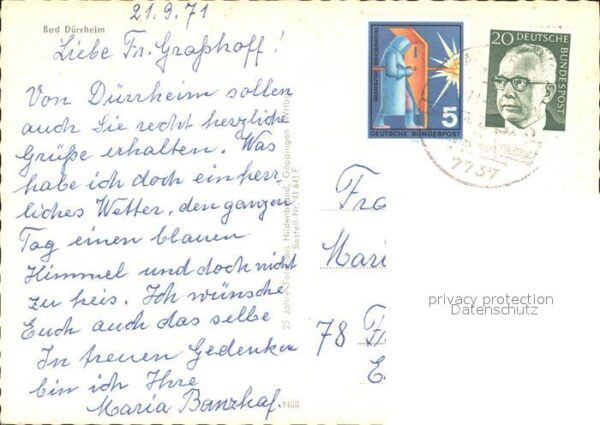 21.9.71
Bad Dürrheim
Liebe Fr. Graßhoff!
Von Dürrheim sollen
auch Sie recht herzliche
Grüße erhalten. Was
habe ich doch ein herr-
liches Wetter, den ganzen
Tag einen blauen
Himmel und doch nicht
zu heis. Ich wünsche
Euch auch das selbe
In treuen Gedenken
bin ich Ihre
Maria Banzhaf.
Bestell-Nr. 41 641 F
5
DEUTSCHE BUNDESPOST
20 DEUTSCHE
BUNDESPOST
7737
Fra
Mari
78
privacy protection
Datenschutz